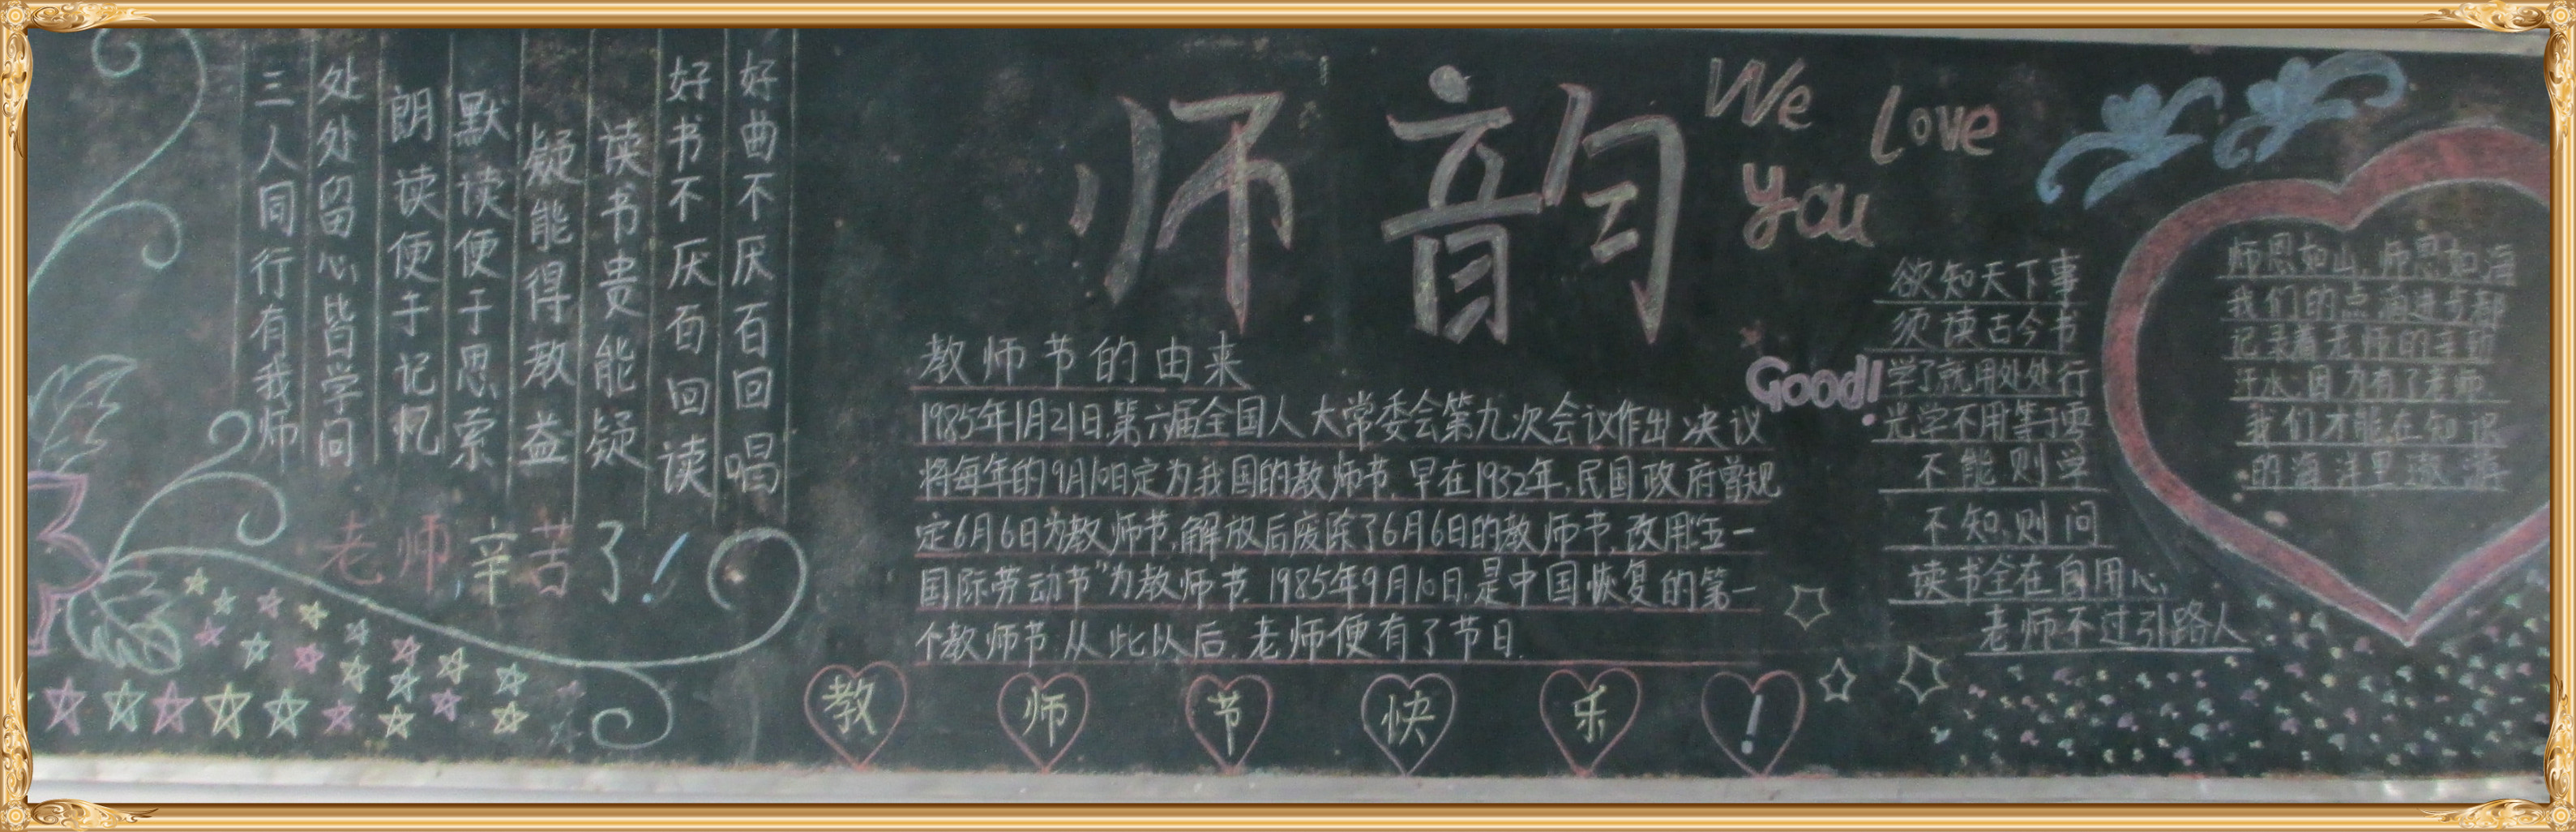 好曲不厌百回唱
好书不厌百回读
读书贵能疑
疑能得教益
默读便于思索
朗读便于记忆
处处留心皆学问
三人同行有我师
老师辛苦了!
师韵
We Love
you
教师节的由来
1985年1月21日,第六届全国人大常委会第九次会议作出决议
将每年的9月10日定为我国的教师节.早在1932年,民国政府曾规
定6月6日为教师节,解放后废除了6月6日的教师节,改用"五一
国际劳动节"为教师节.1985年9月10日,是中国恢复的第一
个教师节.从此以后.老师便有了节日.
教师节快乐!
Good!
欲知天下事
须读古今书
学了就用处处行
光学不用等于零
不能则学
不知则问
读书全在自用心,
老师不过引路人
师恩如山,师恩如海
我们的点滴进步都
记录着老师的辛勤
汗水.因为有了老师.
我们才能在知识
的海洋里遨游